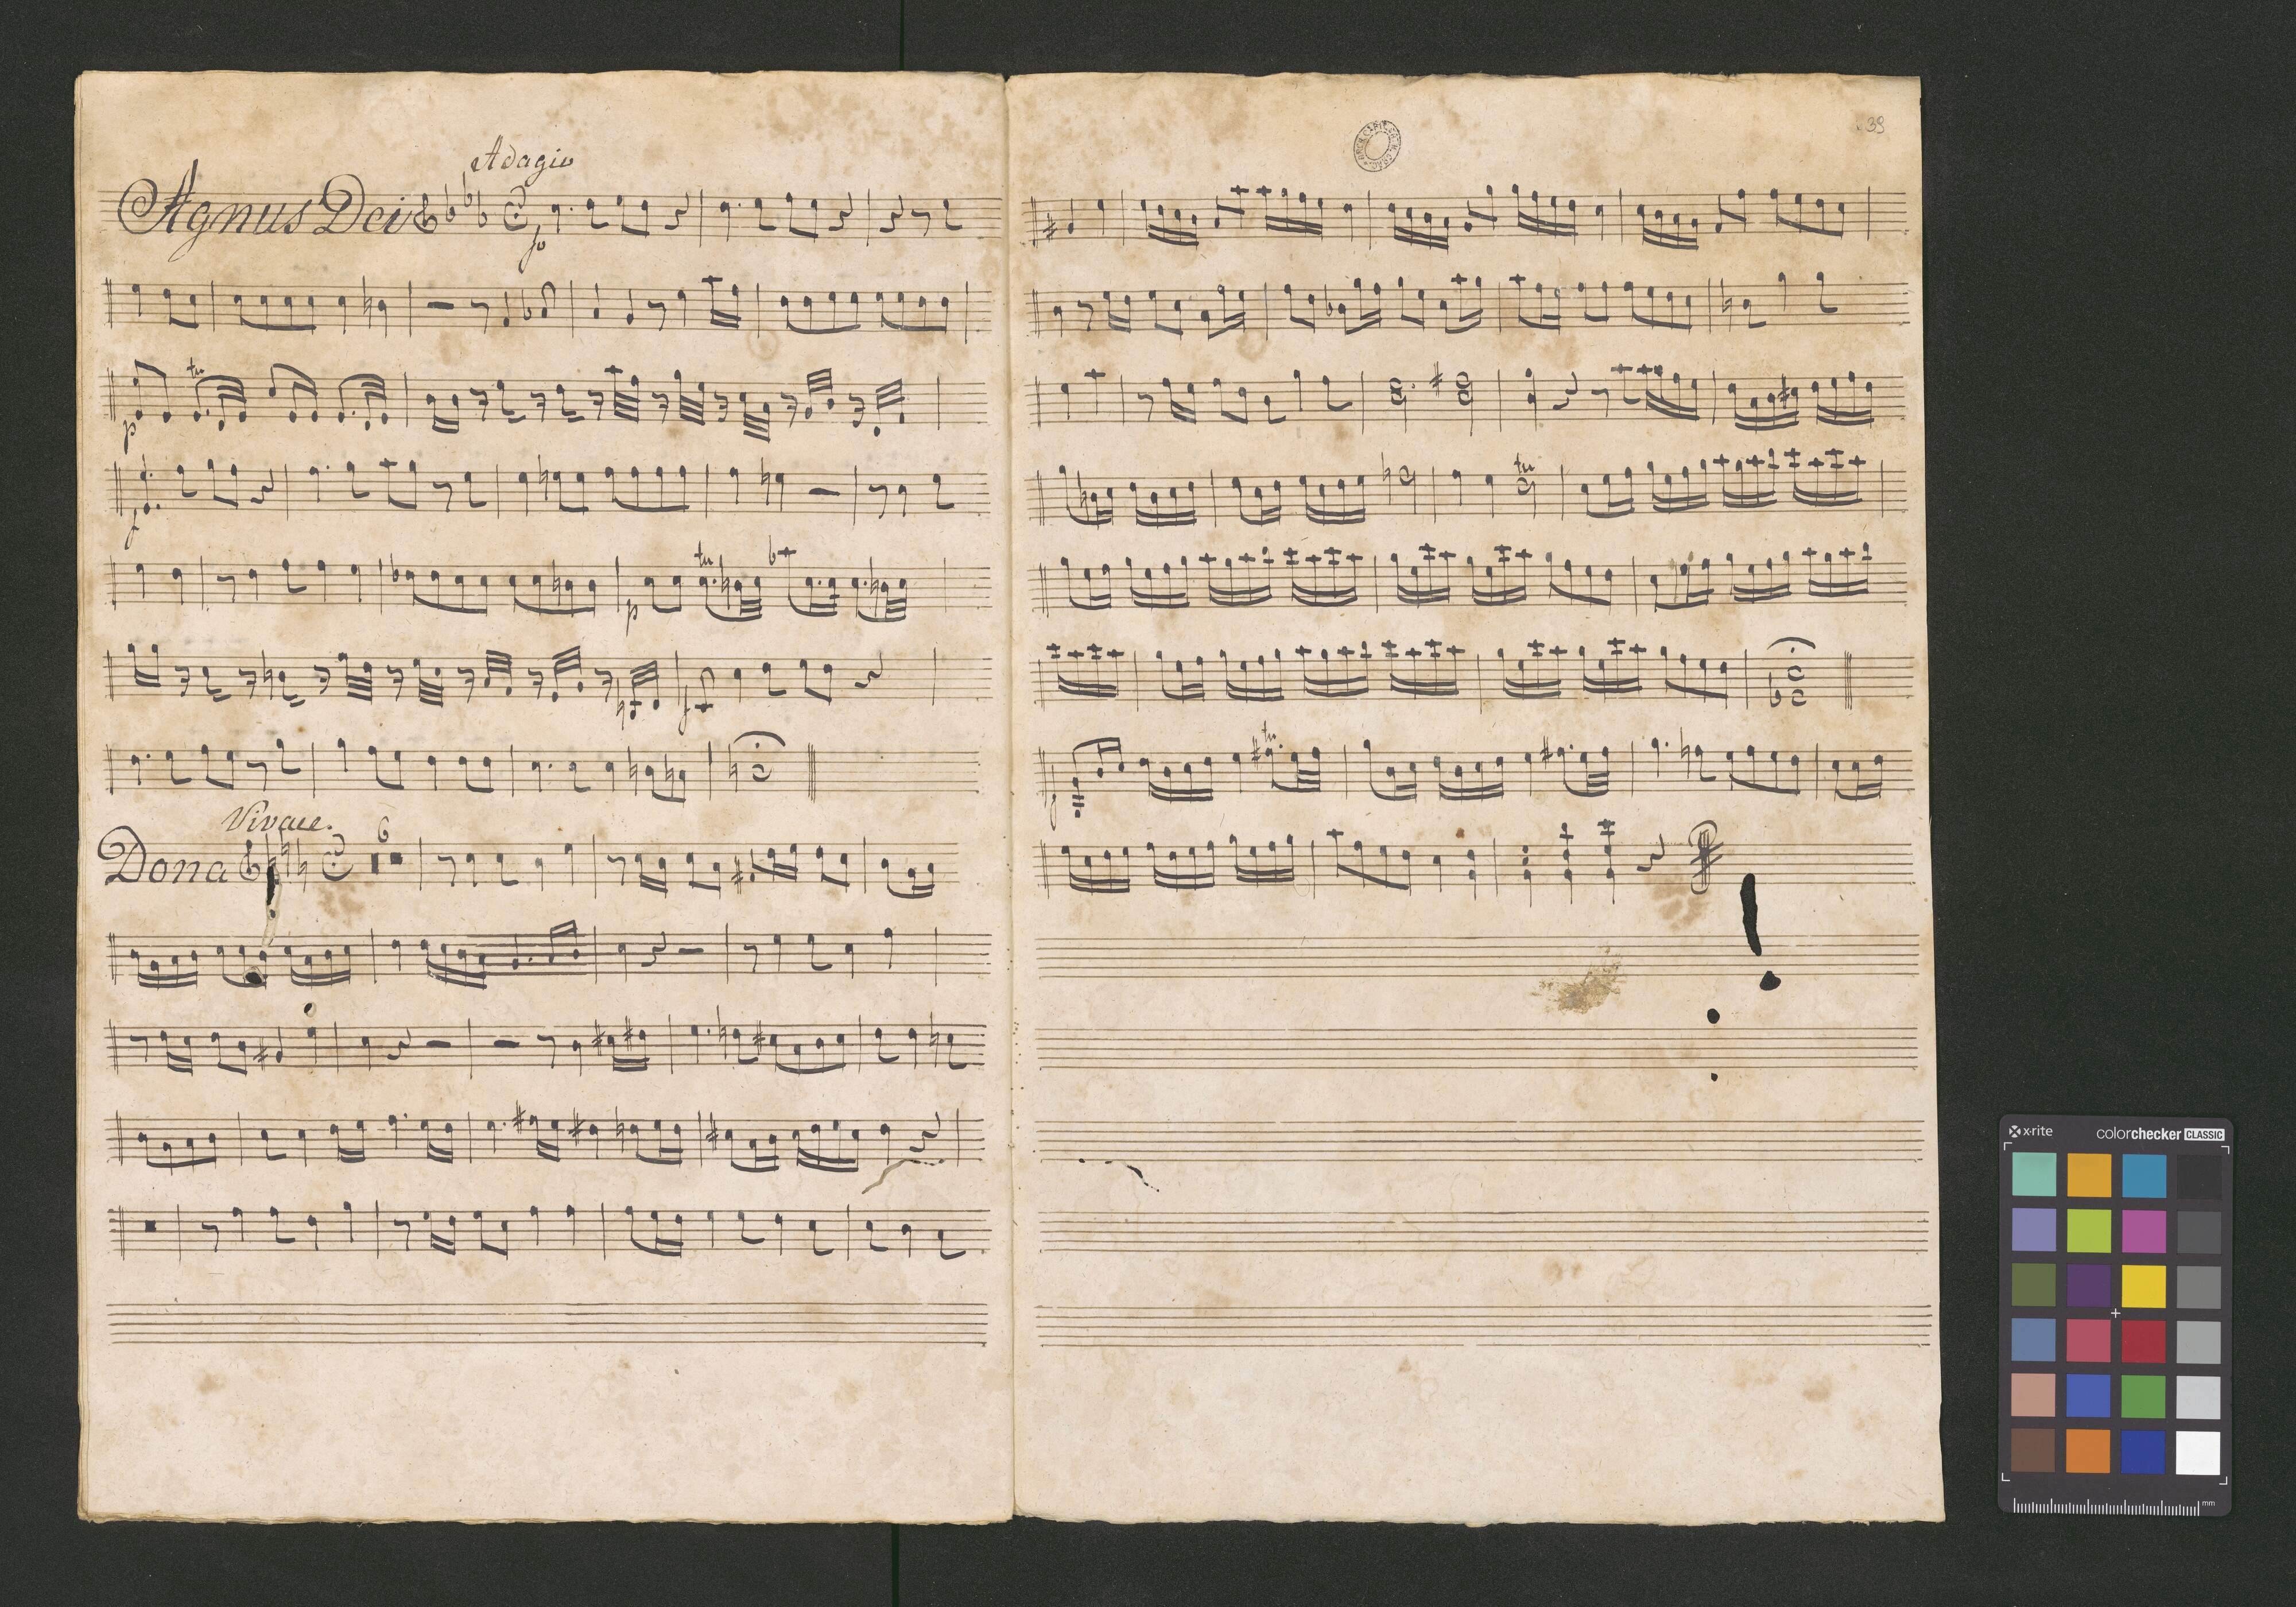 Adagio
Agnus Dei
fo
tr
p
f
tr
p
f
Vivace.
6
Dona
39
tr
tr
f
x-rite
colorchecker CLASSIC
mm